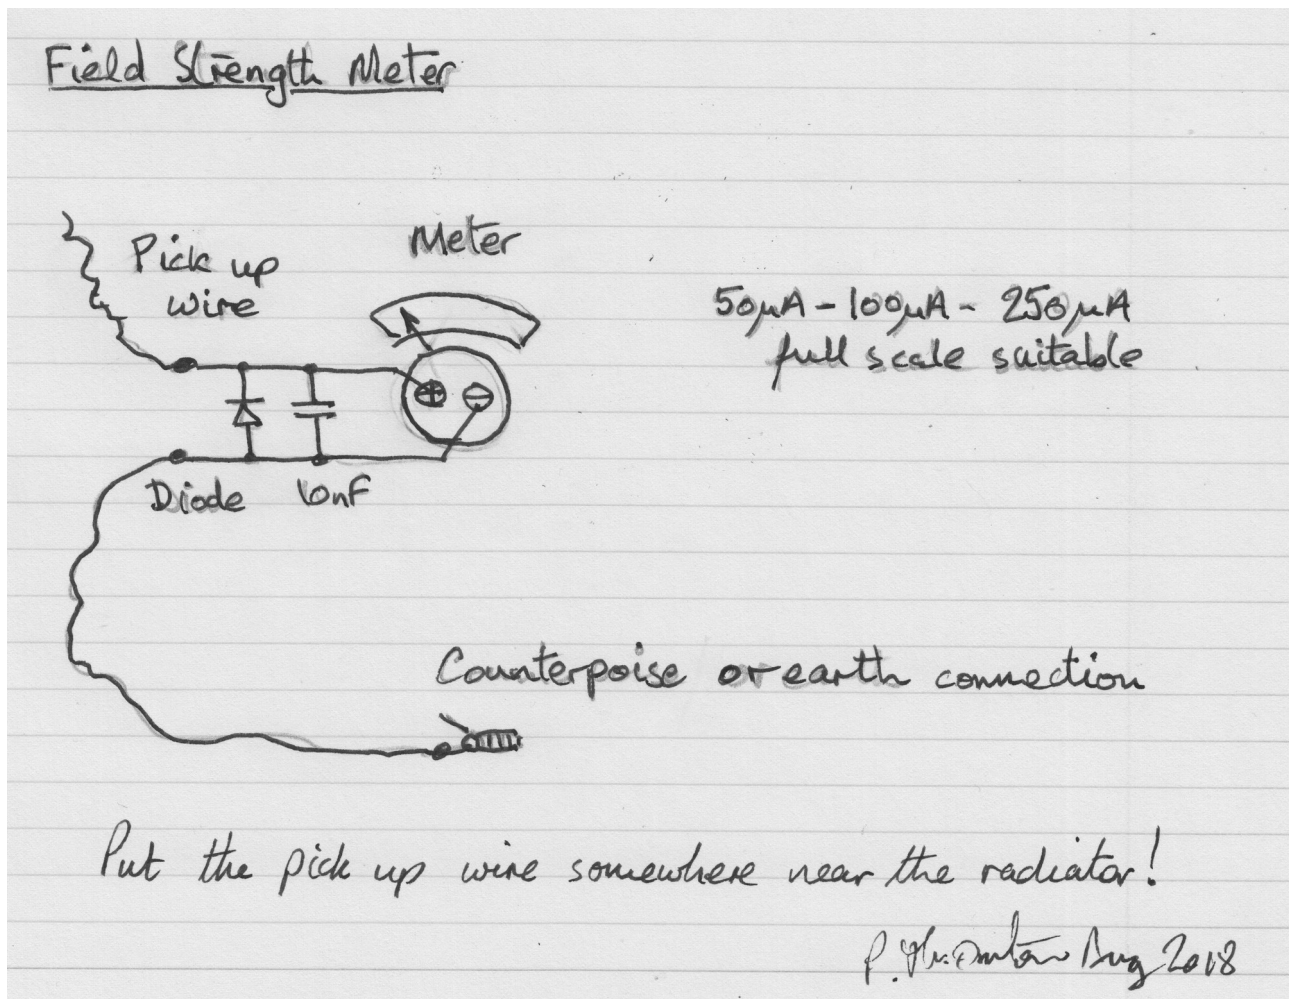 Field Strength Meter
Pick up
wire
Meter
50µA - 100µA - 250µA
full scale suitable
+ −
Diode 10nF
Counterpoise or earth connection
Put the pick up wire somewhere near the radiator!
P. Aug 2018